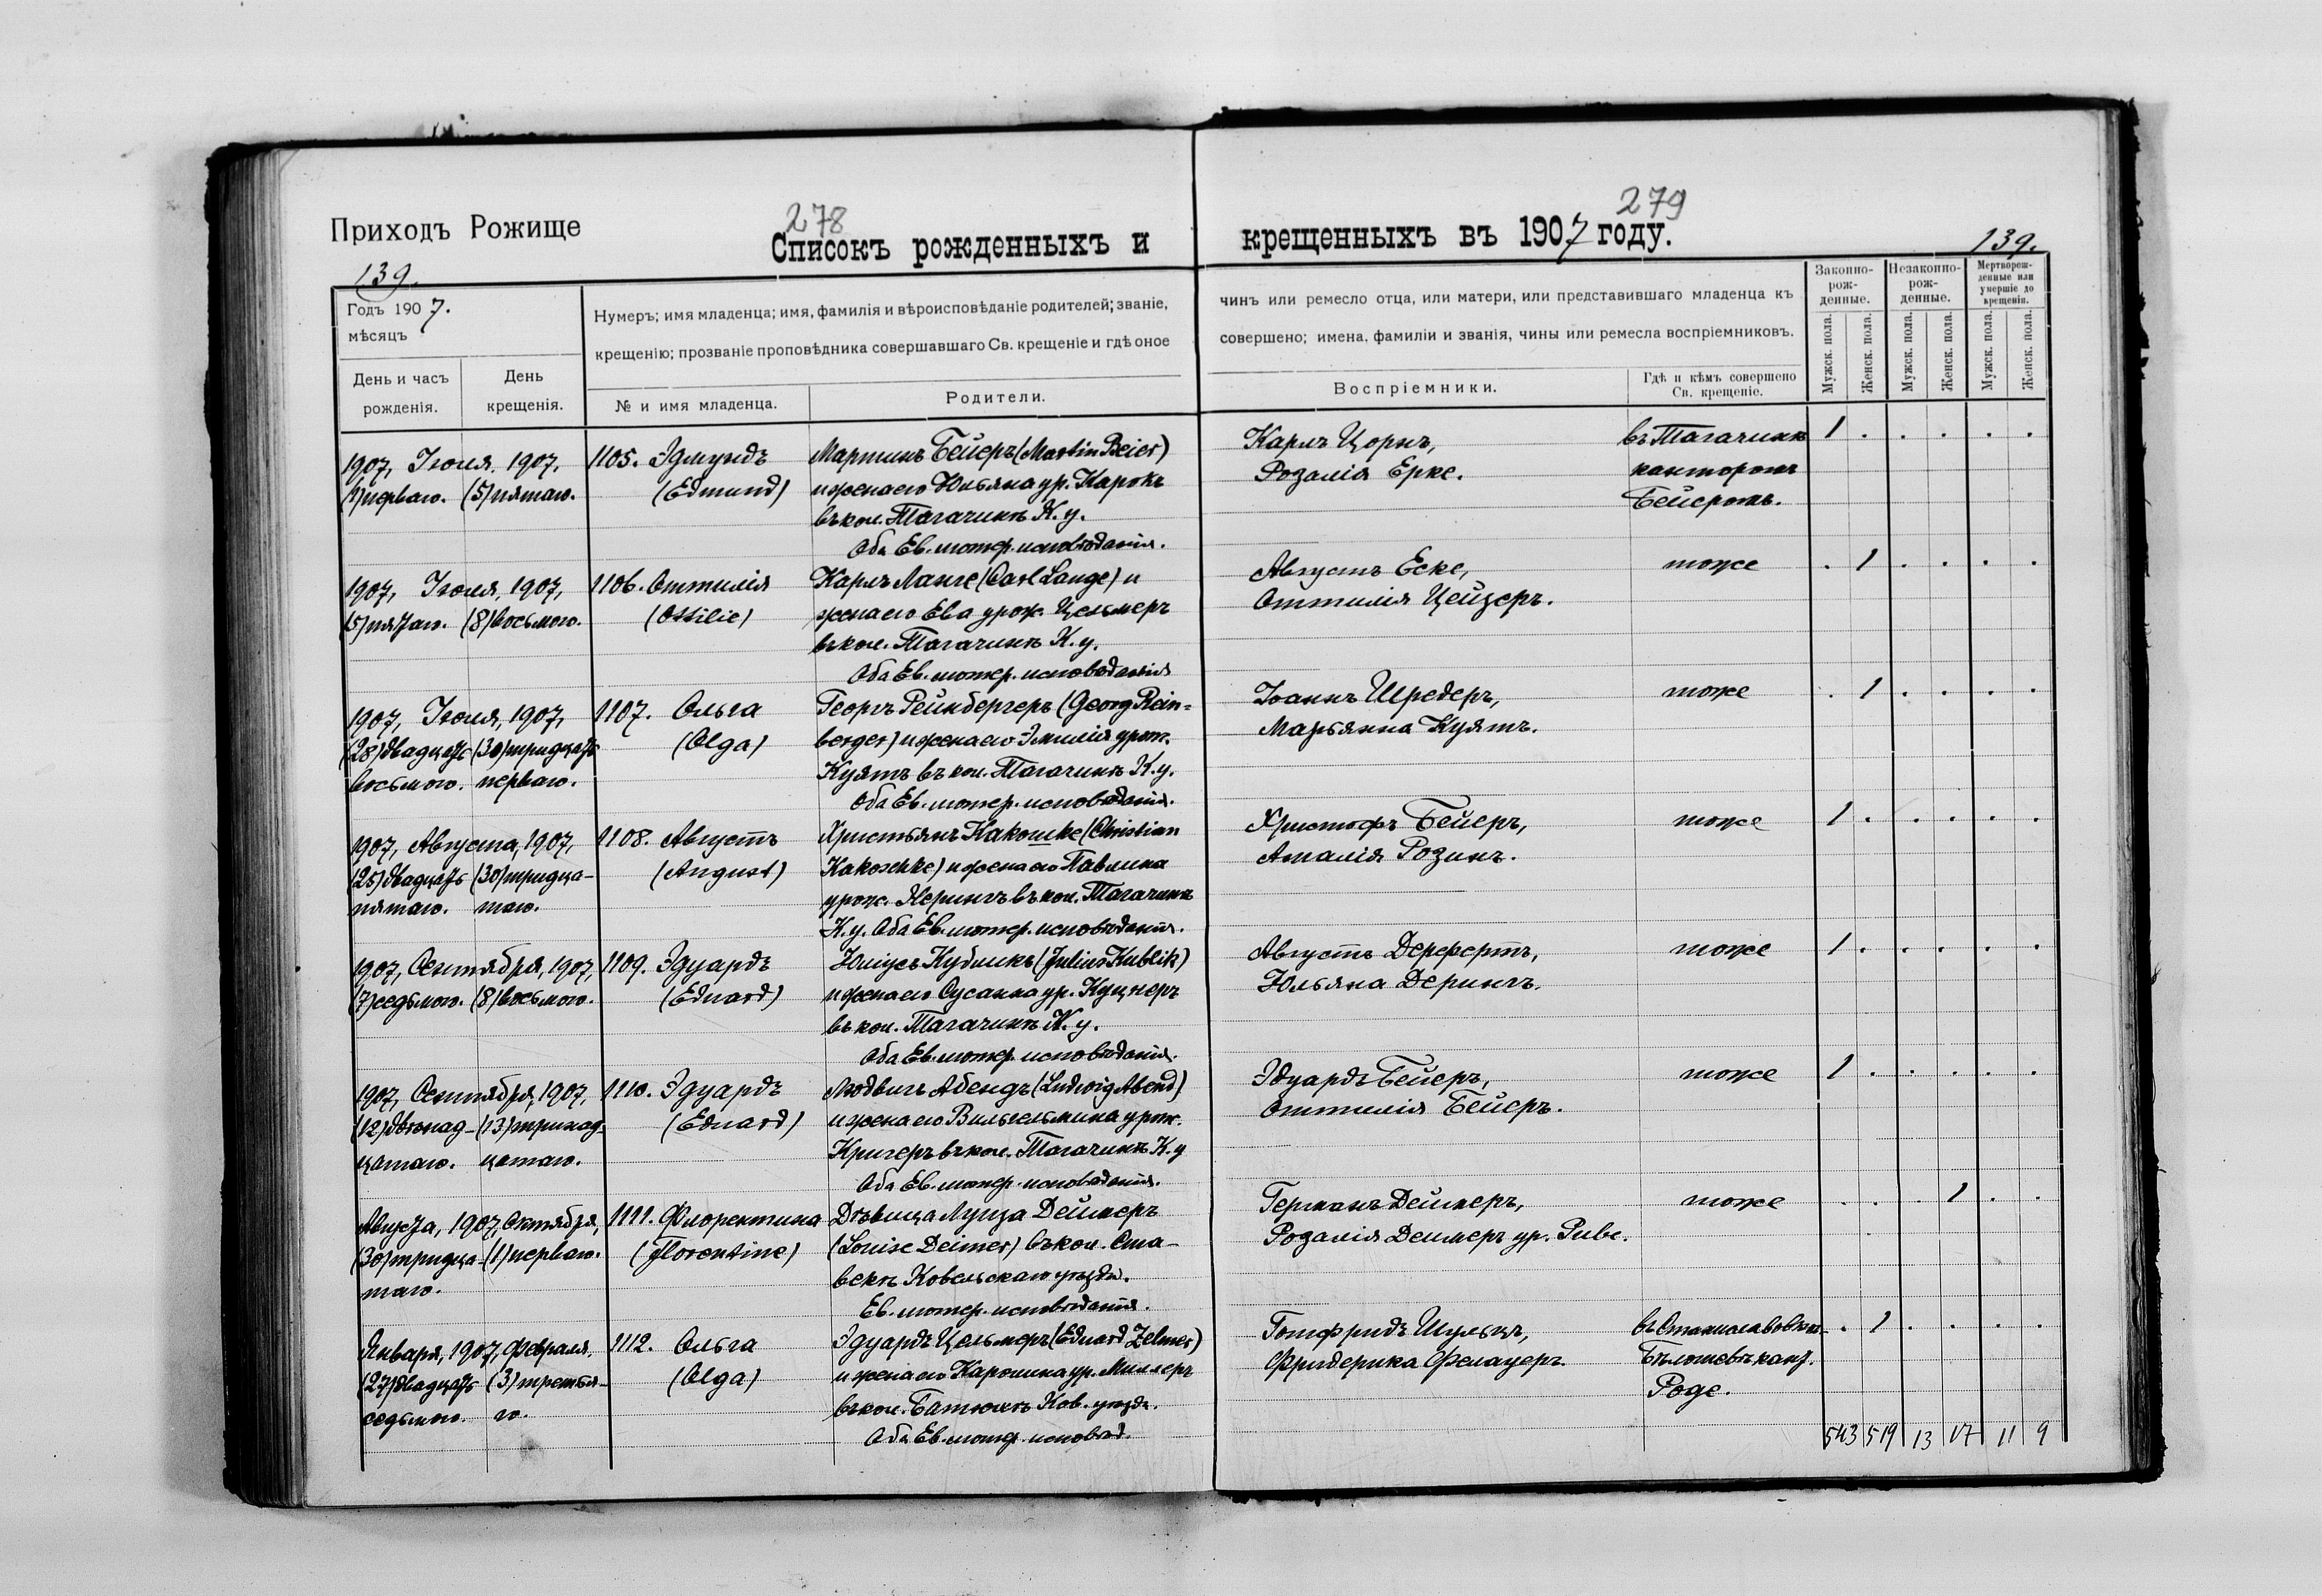 278
279
Приходъ Рожище
Списокъ рожденныхъ и крещенныхъ въ 1907 году.
139.
139.
Годъ 1907.
мѣсяцъ
День и часъ рожденія.
День крещенія.
Нумеръ; имя младенца; имя, фамилія и вѣроисповѣданіе родителей; званіе,
крещенію; прозваніе проповѣдника совершавшаго Св. крещеніе и гдѣ оное
№ и имя младенца.
Родители.
чинъ или ремесло отца, или матери, или представившаго младенца къ
совершено; имена, фамиліи и званія, чины или ремесла воспріемниковъ.
Воспріемники.
Гдѣ и кѣмъ совершено
Св. крещеніе.
Законно-
рож-
денные.
Незаконно-
рож-
денные.
Мертворож-
денные или
умершіе до
крещенія.
Мужск. пола.
Женск. пола.
Мужск. пола.
Женск. пола.
Мужск. пола.
Женск. пола.
1907, Іюля, 1907,
(1) перваго. (5) пятаго.
1105. Эдмундъ
(Edmund)
Мартинъ Бейеръ (Martin Beier)
и жена его Юльяна ур. Карокъ
въ кол. Тагачинъ К. у.
Оба Ев. лютер. исповѣданія.
Карлъ Цорнъ,
Розалія Ерке.
въ Тагачинѣ
канторомъ
Бейеромъ.
1 . . . . .
1907, Іюля, 1907,
(5) пятаго. (8) восьмого.
1106. Оттилія
(Ottilie)
Карлъ Ланге (Carl Lange) и
жена его Ева урож. Цельмеръ
въ кол. Тагачинъ К. у.
Оба Ев. лютер. исповѣданія
Августъ Еске,
Оттилія Цейзеръ.
тоже
. 1 . . . .
1907, Іюля, 1907,
(28) двадцать (30) тридцать
восьмого. перваго.
1107. Ольга
(Olga)
Георгъ Рейнбергеръ (Georg Rein=
berger) и жена его Эмилія урож.
Куятъ въ кол. Тагачинъ К. у.
Оба Ев. лютер. исповѣданія.
Іоаннъ Шредеръ,
Марьянна Куятъ.
тоже
. 1 . . . .
1907, Августа, 1907,
(25) двадцать (30) тридца-
пятаго. таго.
1108. Августъ
(August)
Христьянъ Какошке (Christian
Kakoschke) и жена его Павлина
урож. Яерингъ въ кол. Тагачинъ
К. у. Оба Ев. лютер. исповѣданія.
Христофъ Бейеръ,
Амалія Розинъ.
тоже
1 . . . . .
1907, Сентября, 1907,
(7) седьмого. (8) восьмого.
1109. Эдуардъ
(Eduard)
Юліусъ Кубликъ (Julius Kublik)
и жена его Сусанна ур. Куцнеръ
въ кол. Тагачинъ К. у.
Оба Ев. лютер. исповѣданія.
Августъ Дерфертъ,
Юльяна Дерингъ.
тоже
1 . . . . .
1907, Сентября, 1907,
(12) двѣнад- (13) тринад-
цатаго. цатаго.
1110. Эдуардъ
(Eduard)
Людвигъ Абендъ (Ludwig Abend)
и жена его Вильгельмина урож.
Кригеръ въ кол. Тагачинъ К. у
Оба Ев. лютер. исповѣданія.
Эдуардъ Бейеръ,
Оттилія Бейеръ.
тоже
1 . . . . .
Августа, 1907, Октября,
(30) тридца- (1) перваго.
таго.
1111. Флорентина
(Florentine)
Дѣвица Луиза Деймеръ
(Louise Deimer) въ кол. Ста-
векъ Ковельскаго уѣзда.
Ев. лютер. исповѣданія.
Германъ Деймеръ,
Розалія Деймеръ ур. Риве.
тоже
. . . 1 . .
Января, 1907, Февраля,
(27) двадцать (3) третья-
седьмого. го.
1112. Ольга
(Olga)
Эдуардъ Цельмеръ (Eduard Zelmer)
и жена его Каролина ур. Миллеръ
въ кол. Батюнъ Ков. уѣзда.
Оба Ев. лютер. исповѣд.
Готфридъ Шульцъ,
Фридерика Фелауеръ.
въ Станиславовкѣ-
Бѣлошевѣ кант.
Роде.
. 1 . . . .
543 519 13 17 11 9